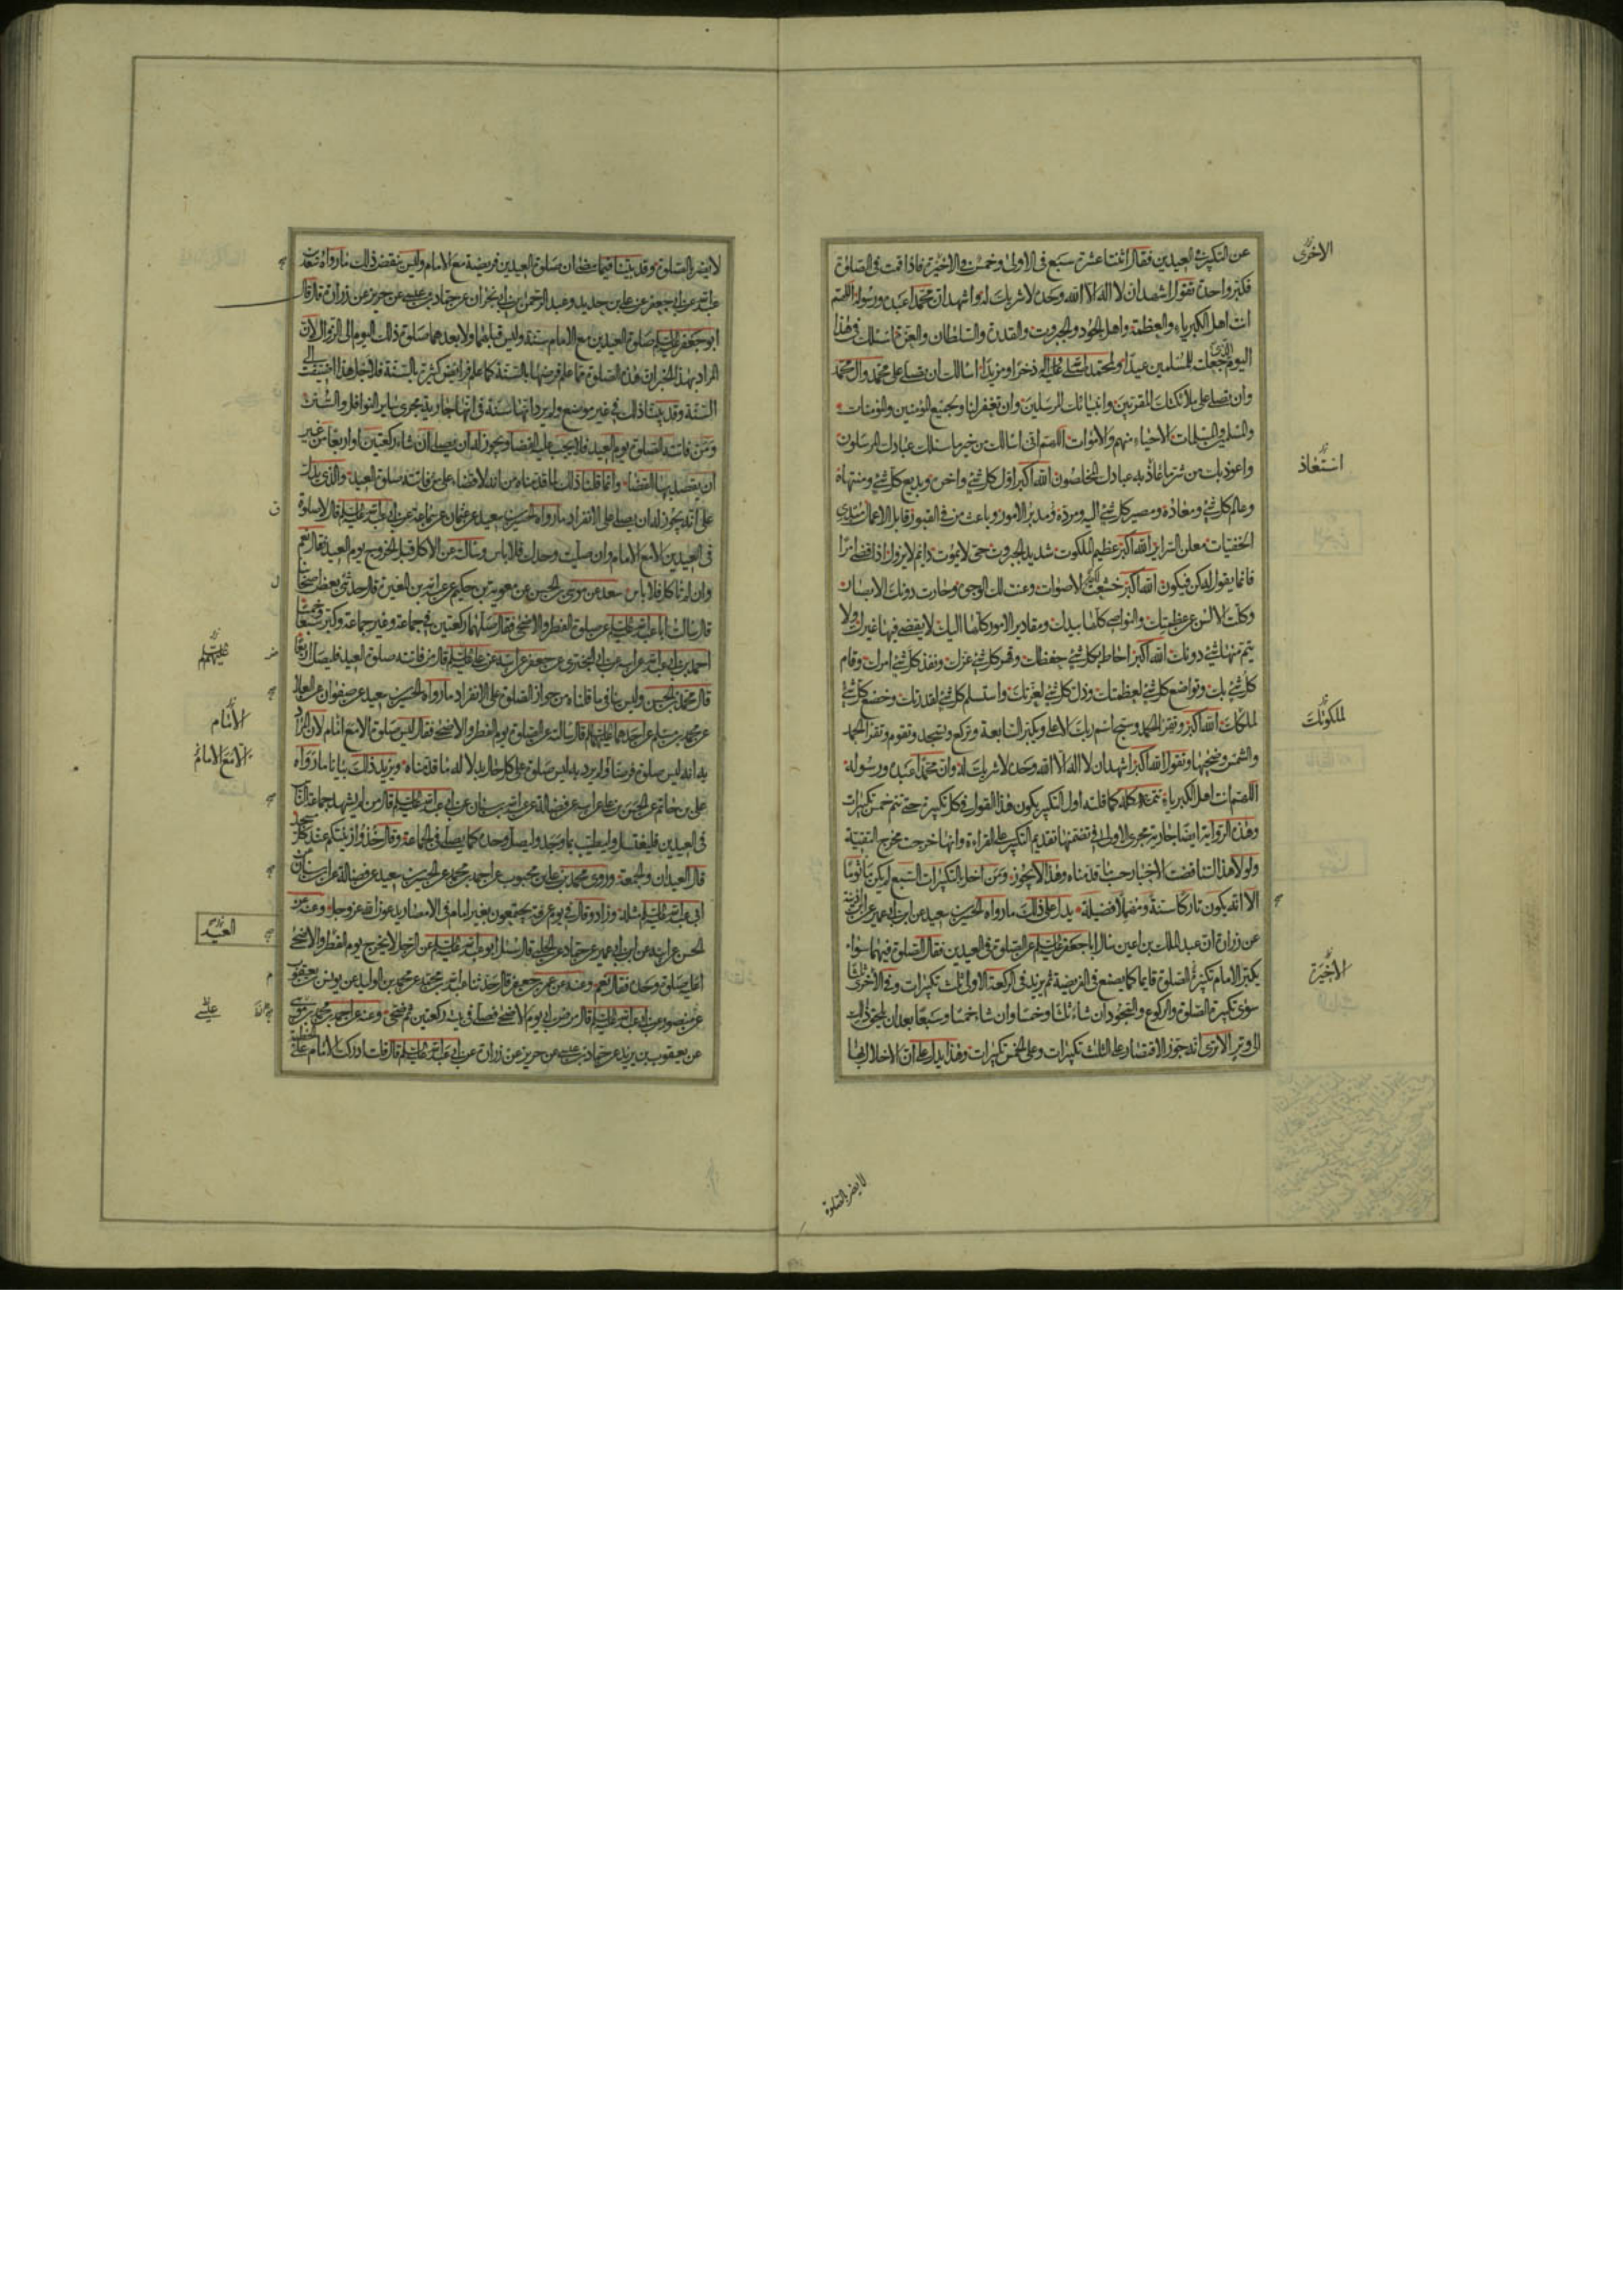 عن التكبير في العيدين فقال اثنتا عشرة سبع في الاولى وخمس في الاخيرة فاذا قمت في الصلوة
فكبر واحدة تقول اشهد ان لا اله الا الله وحده لا شريك له واشهد ان محمدا عبده ورسوله اللهم
انت اهل الكبرياء والعظمة واهل الجود والجبروت والقدرة والسلطان والعزة اسئلك في هذا
اليوم الذي جعلته للمسلمين عيدا ولمحمد صلى الله عليه واله ذخرا ومزيدا اسالك ان تصلي على محمد وال محمد
وان تصلي على ملائكتك المقربين وانبيائك المرسلين وان تغفر لنا ولجميع المؤمنين والمؤمنات
والمسلمين والمسلمات الاحياء منهم والاموات اللهم اني اسالك من خير ما سئلك عبادك المرسلون
واعوذ بك من شر ما عاذ به عبادك المخلصون الله اكبر اول كل شئ واخره وبديع كل شئ ومنتهاه
وعالم كل شئ ومعاذه ومصير كل شئ اليه ومرده ومدبر الامور وباعث من في القبور قابل الاعمال مبدي
الخفيات معلن السراير الله اكبر عظيم الملكوت شديد الجبروت حي لا يموت دائم لا يزول اذا قضى امرا
فانما يقول له كن فيكون الله اكبر خشعت لك الاصوات وعنت لك الوجوه وحارت دونك الابصار
وكلت الالسن عن عظمتك والنواصي كلها بيدك ومقادير الامور كلها اليك لا يقضي فيها غيرك ولا
يتم منها شئ دونك الله اكبر احاط بكل شئ حفظك وقهر كل شئ عزك ونفذ كل شئ امرك وقام
كل شئ بك وتواضع كل شئ لعظمتك وذل كل شئ لعزتك واستسلم كل شئ لقدرتك وخضع كل شئ
لملكك الله اكبر وتقرا الحمد وسبح اسم ربك الاعلى وتكبر السابعة وتركع وتسجد وتقوم وتقرا الحمد
والشمس وضحيها وتقول الله اكبر اشهد ان لا اله الا الله وحده لا شريك له وان محمدا عبده ورسوله
اللهم انت اهل الكبرياء تتمه كله كما قلته اول التكبير يكون هذا القول في كل تكبيرة حتى تتم خمس تكبيرات
وهذه الرواية ايضا جارية مجرى الاولى في تضمنها تقديم التكبير على القراءة وانها خرجت مخرج التقية
ولولا هذا لتناقضت الاخبار حسب ما قدمناه وهذا لا يجوز ومن اخل بالتكبيرات السبع لم يكن ماثوما
الا انه يكون تاركا سنة ومهملا فضيلة يدل على ذلك ما رواه الحسين بن سعيد عن ابن ابي عمير عن ابن اذينة
عن زرارة ان عبد الملك بن اعين سال ابا جعفر عليه السلم عن الصلوة في العيدين فقال الصلوة فيهما سواء
يكبر الامام تكبير الصلوة قايما كما يصنع في الفريضة ثم يزيد في الركعة الاولى ثلث تكبيرات وفي الاخرى ثلثا
سوى تكبيرة الصلوة والركوع والسجود ان شاء ثلثا وخمسا وان شاء خمسا وسبعا بعد ان يلحق ذلك
الى وتر الا ترى انه جوز الاقتصار على الثلث تكبيرات وعلى الخمس تكبيرات وهذا يدل على ان الاخلال بها
الاخرى
استعاذ
لملكوتك
الاخيرة
لا يضر بالصلوة
لا يضر بالصلوة وقد بينا فيما مضى ان صلوة العيدين فريضة مع الامام وليس ينقض ذلك ما رواه سعد بن
عبد الله عن ابي جعفر عن علي بن حديد وعبد الرحمن بن ابي نجران عن حماد بن عيسى عن حريز عن زرارة قال قال
ابو جعفر عليه السلم صلوة العيدين مع الامام سنة وليس قبلهما ولا بعدهما صلوة ذلك اليوم الى الزوال لان
المراد بهذا الخبر ان هذه الصلوة مما علم فرضها بالسنة كما علم فرايض كثيرة بالسنة فلاجل هذا اضيفت الى
السنة وقد بينا ذلك في غير موضع ولم يرد انها سنة في انها جارية مجرى ساير النوافل والسنن
ومن فاتته الصلوة يوم العيد فلا يجب عليه القضا ويجوز له ان يصلي ان شاء ركعتين او اربعا من غير
ان يقصد بها القضا وانما قلنا ذلك لما قدمناه من انه لا قضاء على من فاتته صلوة العيد والذي يدل
على انه يجوز له ان يصلي على الانفراد ما رواه الحسين بن سعيد عن عثمان عن سماعة عن ابي عبد الله عليه السلم قال لا صلوة
في العيدين الا مع الامام وان صليت وحدك فلا باس وسالته عن الاكل قبل الخروج يوم العيد فقال نعم
وان لم تاكل فلا باس سعد عن موسى بن الحسن عن معوية بن حكيم عن عبد الله بن المغيرة قال حدثني بعض اصحابنا
قال سالت ابا عبد الله عليه السلم عن صلوة الفطر والاضحى فقال صلهما ركعتين في جماعة وغير جماعة وكبر سبعا وخمسا
احمد بن ابي عبد الله عن ابيه عن ابي البختري عن جعفر عن ابيه عن علي عليه السلم قال من فاتته صلوة العيد فليصل اربعا
قال محمد بن الحسن وليس ينافي ما قلناه من جواز الصلوة على الانفراد ما رواه الحسين بن سعيد عن صفوان عن العلا
عن محمد بن مسلم عن احدهما عليهما السلم قال سالته عن الصلوة يوم الفطر والاضحى فقال ليس صلوة الا مع امام لان المراد
به انه ليس صلوة فرضا ولم يرد به ليس صلوة على كل حال بدلالة ما قدمناه ويزيد ذلك بيانا ما رواه
علي بن حاتم عن الحسن بن علي عن ابيه عن فضالة عن عبد الله بن سنان عن ابي عبد الله عليه السلم قال من لم يشهد جماعة الناس
في العيدين فليغتسل وليطيب بما وجد وليصل وحده كما يصلي في الجماعة وقال خذوا زينتكم عند كل مسجد
قال العيدان والجمعة وروى محمد بن علي بن محبوب عن احمد بن محمد عن الحسين بن سعيد عن فضالة عن ابن سنان عن
ابي عبد الله عليه السلم مثله وزاد وقال في يوم عرفة يجتمعون بغير امام في الامصار يدعون الله عز وجل وعنه عن
الحسن عن ابيه عن ابن ابي عمير عن حماد عن الحلبي قال سئل ابو عبد الله عليه السلم عن الرجل لا يخرج يوم الفطر والاضحى
اعليه صلوة وحده فقال نعم وعنه عن جعفر قال حدثنا عبد الله بن محمد عن محمد بن الوليد عن يونس بن يعقوب
عن منصور عن ابي عبد الله عليه السلم قال مرض ابي يوم الاضحى فصلى في بيته ركعتين ثم ضحى وعنه عن احمد بن محمد بن موسى
عن يعقوب بن يزيد عن حماد بن عيسى عن حريز عن زرارة عن ابي عبد الله عليه السلم قال قلت ادركت الامام على الخطبة
عليهم
الامام
الا مع الامام
العيد
علي